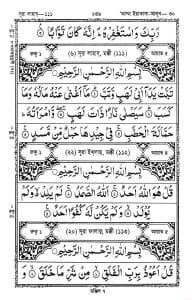 সূরা লাহাব—১১১ ৮৩৯ ‘আম্মা ইয়াতাছা-আলূন—৩০
رَبِّكَ وَاسْتَغْفِرْهُ ۚ إِنَّهُ كَانَ تَوَّابًا ۝
রুকূ ১ (৬) সূরা লাহাব, মক্কী (১১১) আয়াত ৫
بِسْمِ اللهِ الرَّحْمٰنِ الرَّحِيْمِ
تَبَّتْ يَدَا أَبِي لَهَبٍ وَتَبَّ ۝ مَا أَغْنَى عَنْهُ مَالُهُ وَمَا
كَسَبَ ۝ سَيَصْلَى نَارًا ذَاتَ لَهَبٍ ۝ وَامْرَأَتُهُ ۖ
حَمَّالَةَ الْحَطَبِ ۝ فِي جِيدِهَا حَبْلٌ مِنْ مَسَدٍ ۝
রুকূ ১ সূরা ইখলাছ, মক্কী (১১২) আয়াত ৪
بِسْمِ اللهِ الرَّحْمٰنِ الرَّحِيْمِ
قُلْ هُوَ اللهُ أَحَدٌ ۝ اللهُ الصَّمَدُ ۝ لَمْ يَلِدْ وَلَمْ
يُولَدْ ۝ وَلَمْ يَكُنْ لَهُ كُفُوًا أَحَدٌ ۝
রুকূ ১ (২০) সূরা ফালাক্ব, মক্কী (১১৩) আয়াত ৫
بِسْمِ اللهِ الرَّحْمٰنِ الرَّحِيْمِ
قُلْ أَعُوذُ بِرَبِّ الْفَلَقِ ۝ مِنْ شَرِّ مَا خَلَقَ ۝
মঞ্জিল ৭